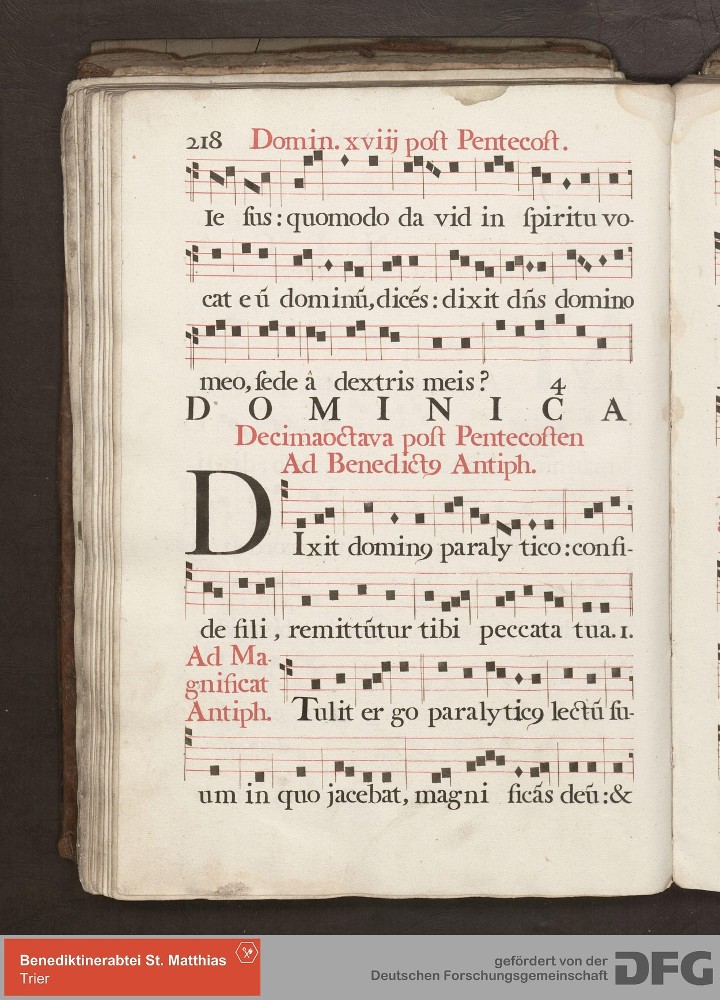 218 Domin. xviij poſt Pentecoſt.
Ie ſus: quomodo da vid in ſpiritu vo-
cat e ũ dominũ, dicẽs: dixit dñs domino
meo, ſede â dextris meis? 4
DOMINICA
Decimaoctava poſt Pentecoſten
Ad Benedictꝰ Antiph.
DIxit dominꝰ paraly tico: confi-
de fili, remittũtur tibi peccata tua. 1.
Ad Ma-
gnificat
Antiph. Tulit er go paralyticꝰ lectũ ſu-
um in quo jacebat, magni ficãs deũ: &
Benediktinerabtei St. Matthias
Trier
gefördert von der
Deutschen Forschungsgemeinschaft DFG